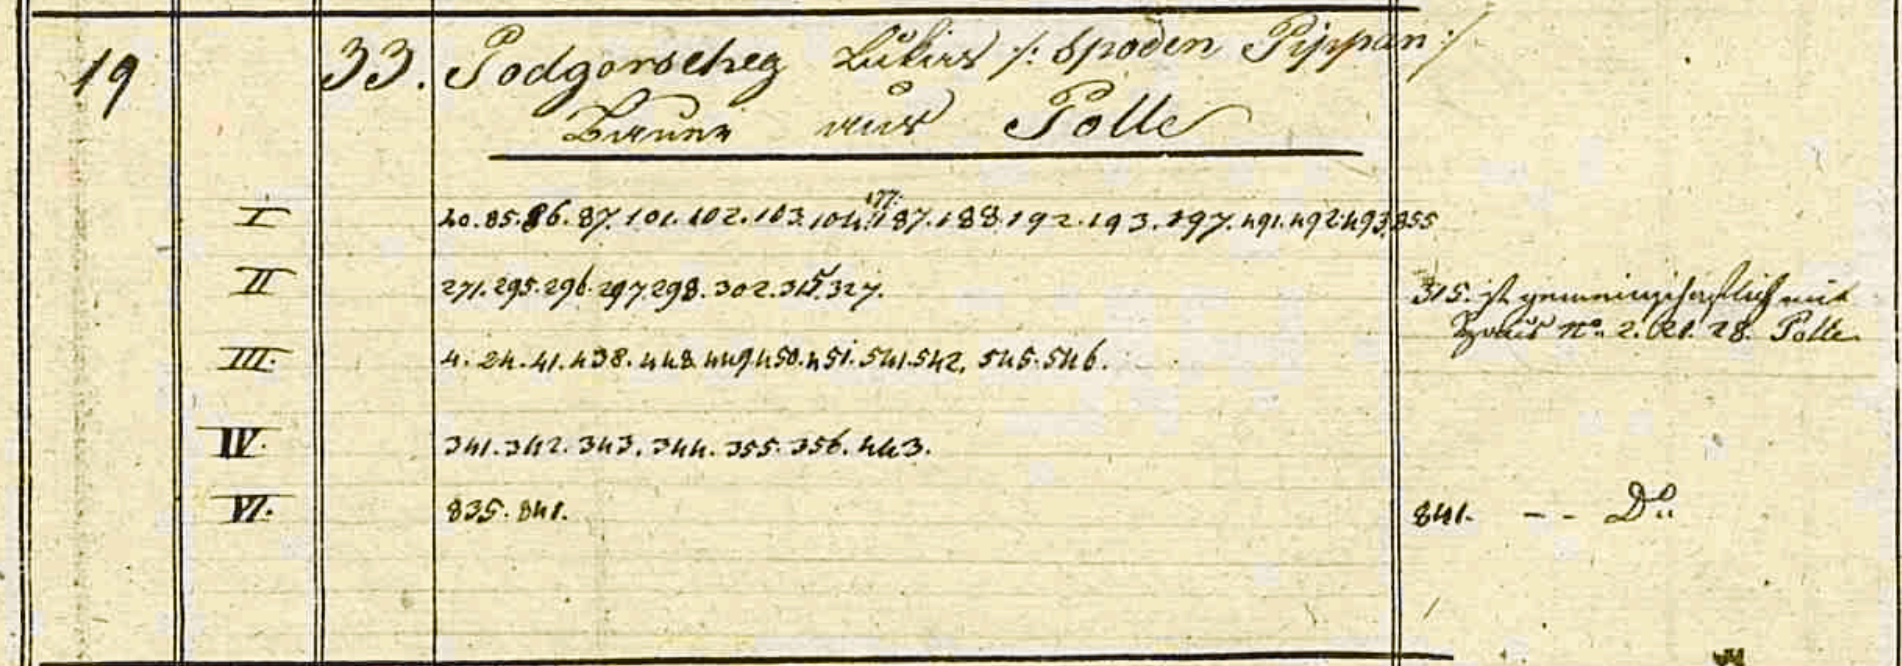 19 33. Podgorscheg Lukas /: Spoden Pippan :/
Bauer aus Polle
I 40. 85. 86. 87. 101. 102. 103. 104. 177. 187. 188. 192. 193. 197. 491. 492. 493. 855
II 271. 295. 296. 297. 298. 302. 315. 327. 315. ist gemeinschaftlich mit
Haus No. 2. 21. 28. Polle
III. 4. 24. 41. 438. 448. 449. 450. 451. 541. 542. 545. 546.
IV. 341. 342. 343. 344. 355. 356. 443.
VI. 835. 841. 841. - - Do.